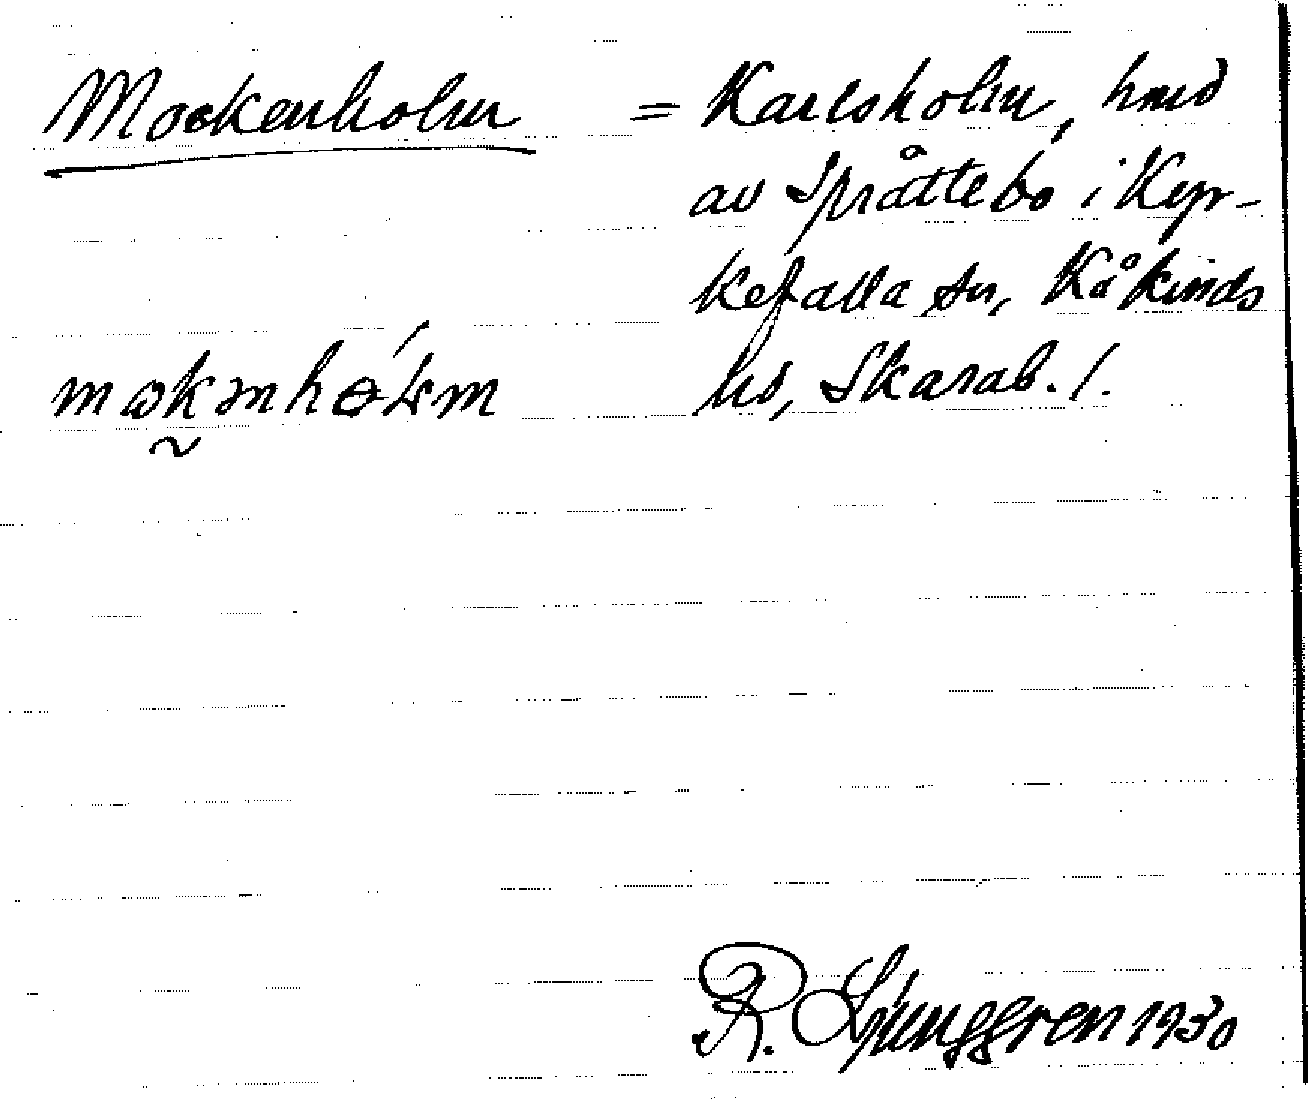 Mockenholm = Karlsholm, hmd
av Språttebo i Kyr-
kefalla sn, Kåkinds
hd, Skarab. l.
R. Ljunggren 1930